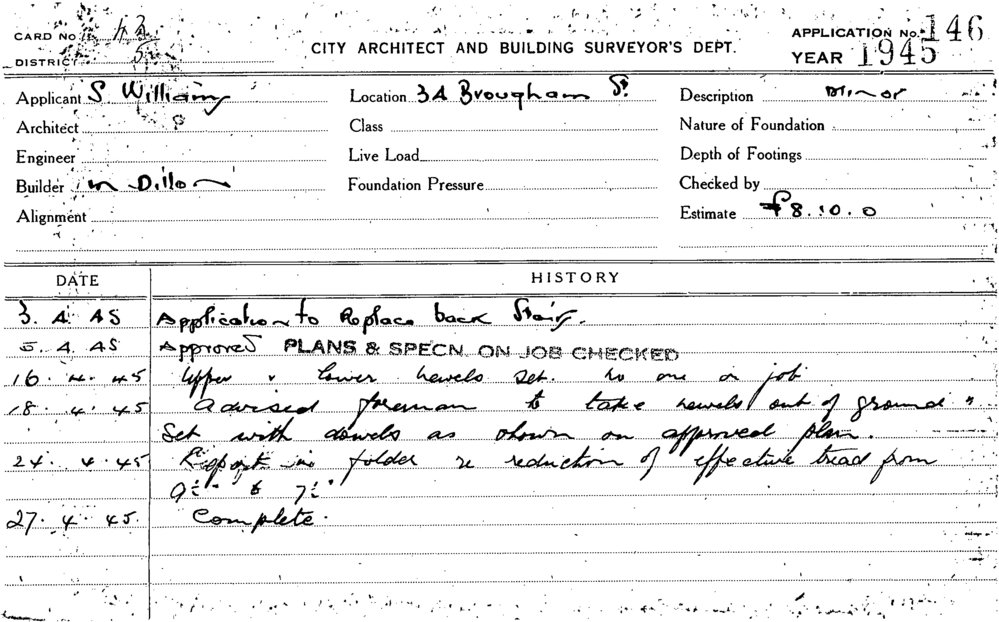 CARD No 43
DISTRICT
CITY ARCHITECT AND BUILDING SURVEYOR'S DEPT.
APPLICATION No. 146
YEAR 1945
Applicant S Williams
Location 34 Brougham St.
Description minor
Architect
Class
Nature of Foundation
Engineer
Live Load
Depth of Footings
Builder Dillon
Foundation Pressure
Checked by
Alignment
Estimate £8.10.0
DATE
HISTORY
3. 4. 45 Application to Replace back Stairs.
5. 4. 45 Approved PLANS & SPECN. ON JOB CHECKED
16. 4. 45 Upper & lower newels set. no one on job
18. 4. 45 advised foreman to take newels out of ground
set with dowels as shown on approved plan.
24. 4. 45 Report in folder re reduction of effective tread from
9½" to 7½"
27. 4. 45. Complete.